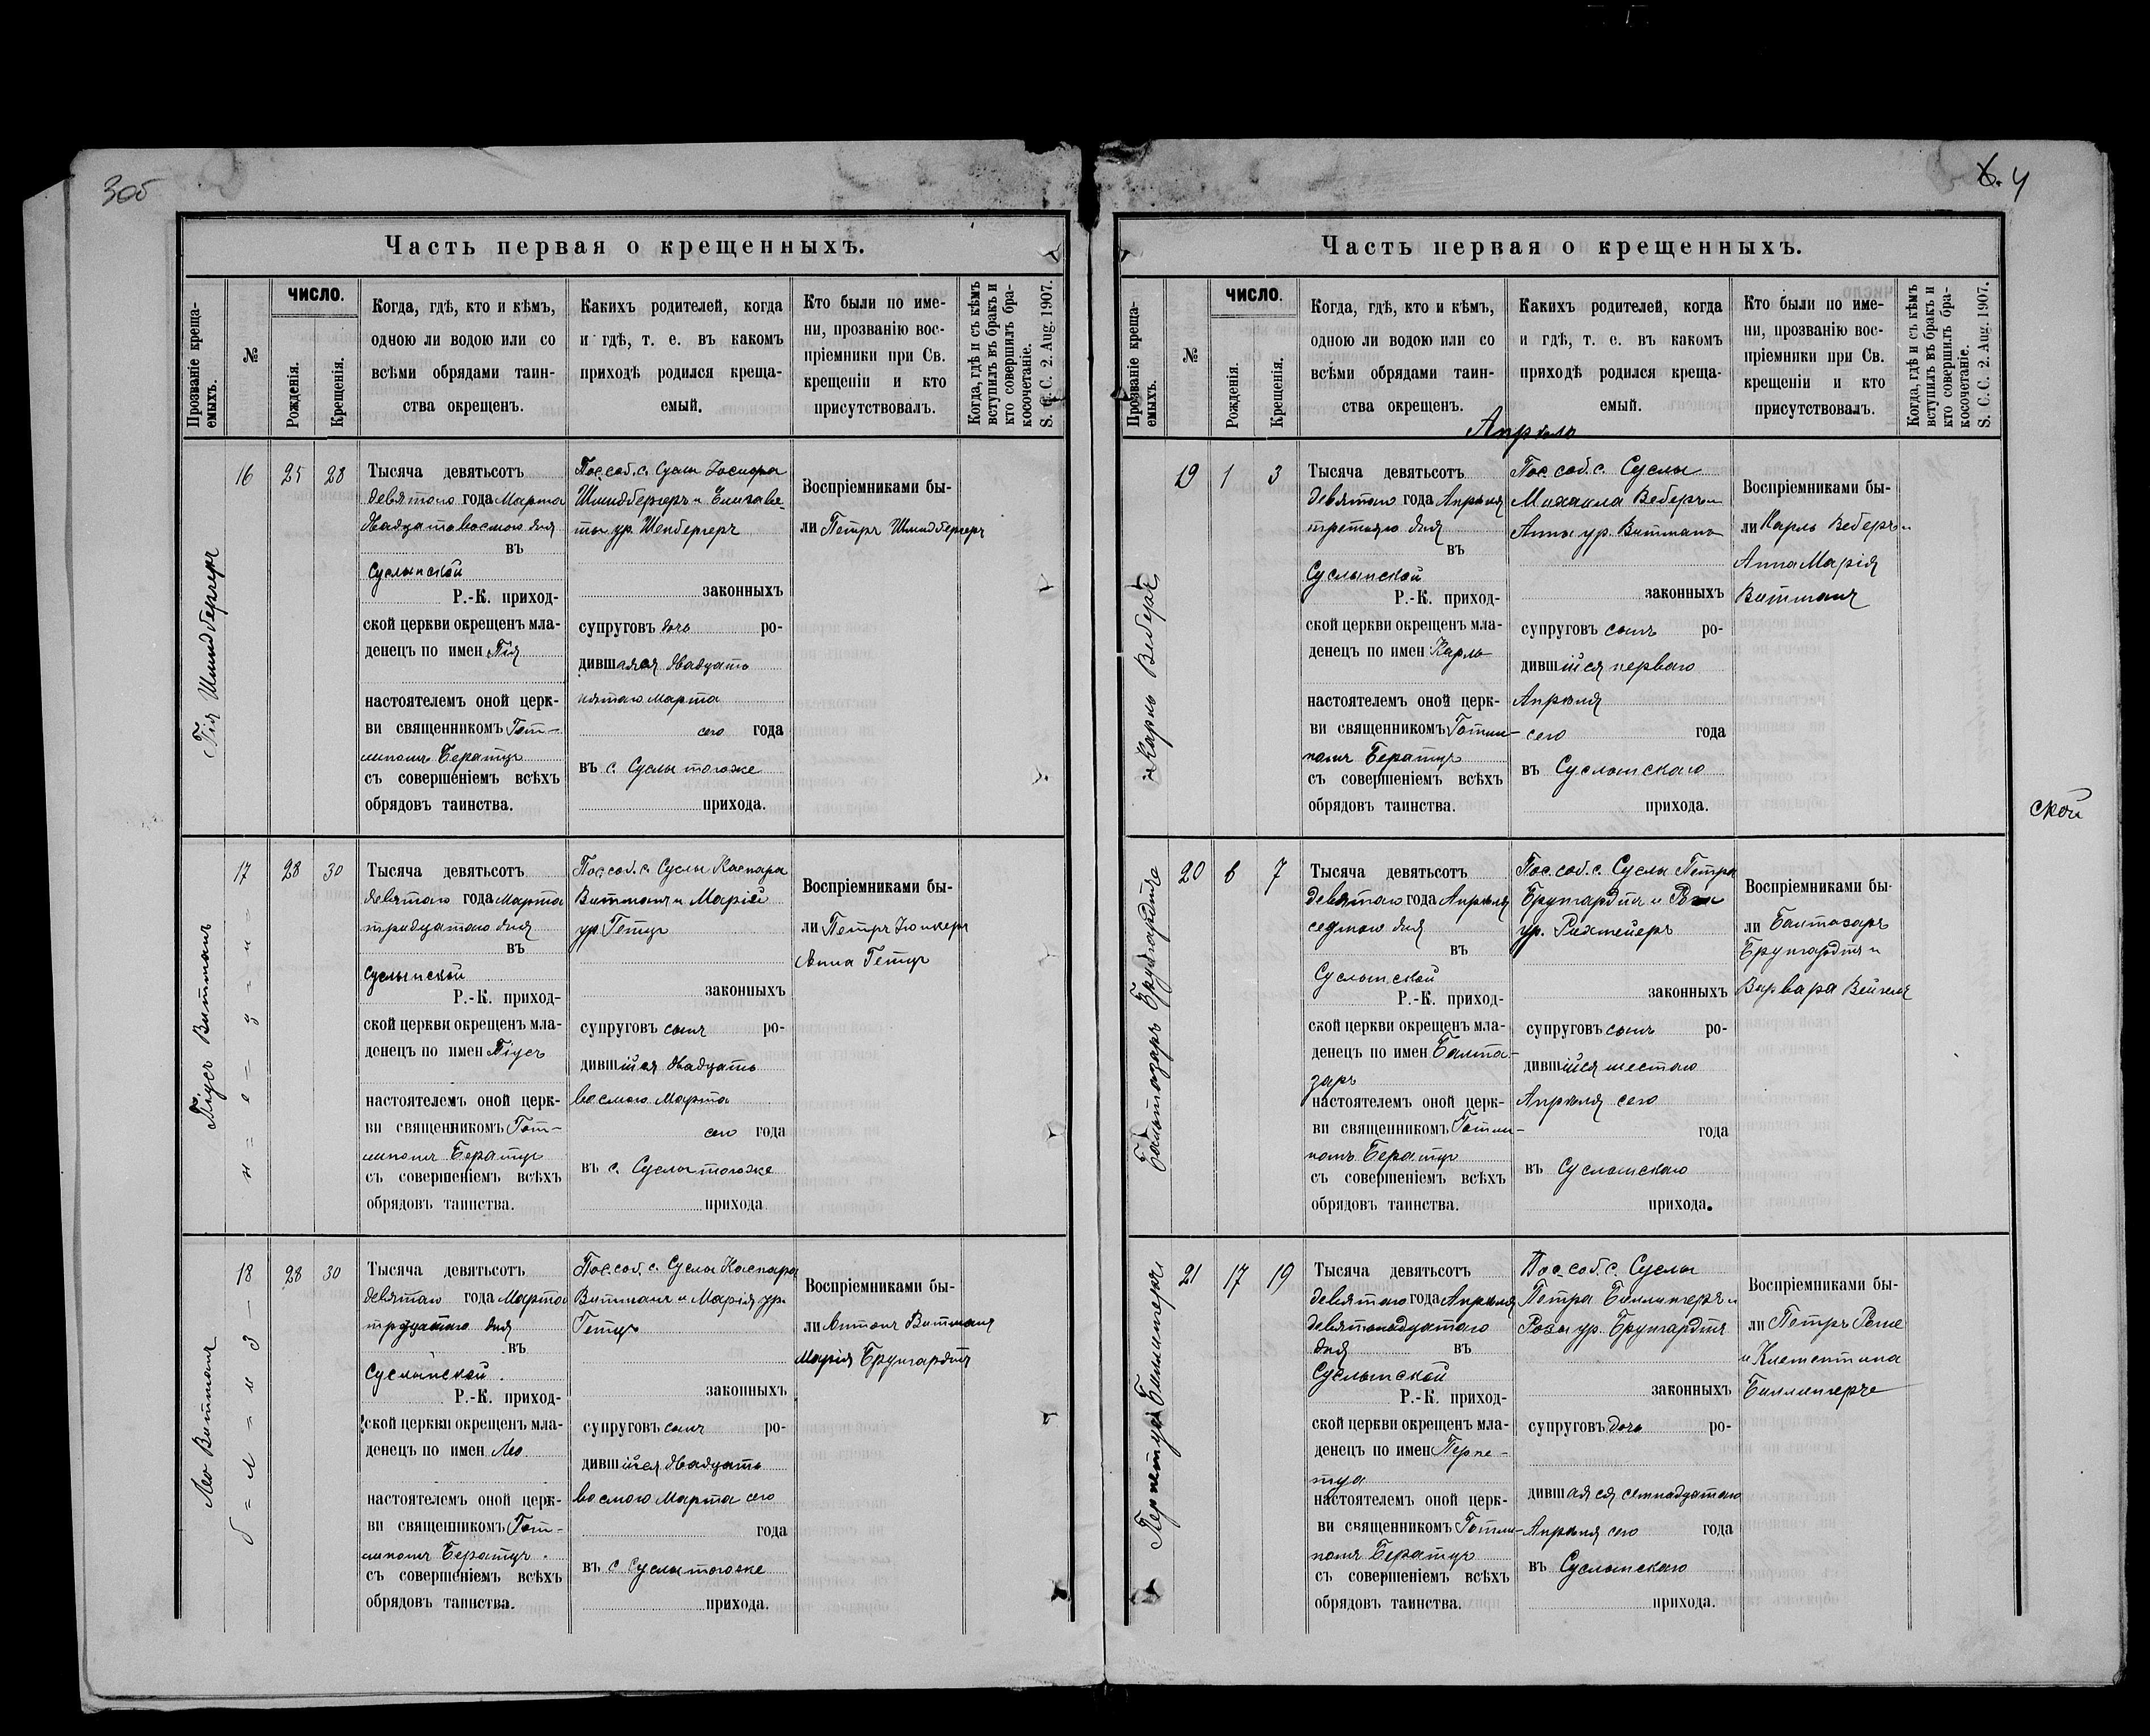 3об
Часть первая о крещенныхъ.
Прозваніе креща-
емыхъ.
№
ЧИСЛО.
Рожденія.
Крещенія.
Когда, гдѣ, кто и кѣмъ,
одною ли водою или со
всѣми обрядами таин-
ства окрещенъ.
Какихъ родителей, когда
и гдѣ, т. е. въ какомъ
приходѣ родился креща-
емый.
Кто были по име-
ни, прозванію вос-
пріемники при Св.
крещеніи и кто
присутствовалъ.
Когда, гдѣ и съ кѣмъ
вступилъ въ бракъ и
кто совершилъ бра-
косочетаніе.
S. C. C. 2. Aug. 1907.
Пія Шмидбергеръ
16
25
28
Тысяча девятьсотъ
девятого года Марта
двадцатовосмого дня
въ
Суслынской
Р.-К. приход-
ской церкви окрещенъ мла-
денецъ по имен Пія
настоятелемъ оной церк-
ви священникомъ Гот-
липомъ Бератцъ
съ совершеніемъ всѣхъ
обрядовъ таинства.
Пос. соб. с. Суслы Іосифа
Шмидбергеръ и Елизаве-
ты ур. Шенбергеръ
законныхъ
супруговъ дочь ро-
дившаяся двадцать
пятого марта
сего года
въ с. Суслы тогоже
прихода.
Воспріемниками бы-
ли Петръ Шмидбергеръ
Піусъ Витманъ
17
28
30
Тысяча девятьсотъ
девятого года Марта
тридцатого дня
въ
Суслынской
Р.-К. приход-
ской церкви окрещенъ мла-
денецъ по имен Піусъ
настоятелемъ оной церк-
ви священникомъ Гот-
липомъ Бератцъ
съ совершеніемъ всѣхъ
обрядовъ таинства.
Пос. соб. с. Суслы Каспара
Витманъ и Марій
ур. Гетцъ
законныхъ
супруговъ сынъ ро-
дившійся двадцать
восмого Марта
сего года
въ с. Суслы тогоже
прихода
Воспріемниками бы-
ли Петръ Юнкеръ
Анна Гетцъ
Лео Витманъ
18
28
30
б = л = и з — н = е = ц = н =
Тысяча девятьсотъ
девятого года Марта
тридцатого дня
въ
Суслынской.
Р.-К. приход-
ской церкви окрещенъ мла-
денецъ по имен Лео
настоятелемъ оной церк-
ви священникомъ Гот-
липомъ Бератцъ.
съ совершеніемъ всѣхъ
обрядовъ таинства.
Пос. соб. с. Суслы Каспара
Витманъ и Марія ур.
Гетцъ
законныхъ
супруговъ сынъ ро-
дившійся двадцать
восмого Марта сего
года
въ с Суслы тогоже
прихода.
Воспріемниками бы-
ли Антонъ Витманъ
Марія Брунгардтъ
4
Часть первая о крещенныхъ.
Прозваніе креща-
емыхъ.
№
ЧИСЛО.
Рожденія.
Крещенія.
Когда, гдѣ, кто и кѣмъ,
одною ли водою или со
всѣми обрядами таин-
ства окрещенъ.
Какихъ родителей, когда
и гдѣ, т. е. въ какомъ
приходѣ родился креща-
емый.
Кто были по име-
ни, прозванію вос-
пріемники при Св.
крещеніи и кто
присутствовалъ.
Когда, гдѣ и съ кѣмъ
вступилъ въ бракъ и
кто совершилъ бра-
косочетаніе.
S. C. C. 2. Aug. 1907.
Апрѣль
Карлъ Веберъ
19
1
3
Тысяча девятьсотъ
девятого года Апрѣля
третьяго дня
въ
Суслынской
Р.-К. приход-
ской церкви окрещенъ мла-
денецъ по имен Карлъ
настоятелемъ оной церк-
ви священникомъ Готли-
помъ Бератцъ
съ совершеніемъ всѣхъ
обрядовъ таинства.
Пос. соб. с. Суслы
Михаила Веберъ и
Анны ур. Витманъ
законныхъ
супруговъ сынъ ро-
дившійся первого
Апрѣля
сего года
въ Суслынского
прихода.
Воспріемниками бы-
ли Карлъ Веберъ и
Анна Марія
Витманъ
ской
Балтазаръ Брунгардтъ
20
6
7
Тысяча девятьсотъ
девятого года Апрѣля
седмого дня
въ
Суслынской
Р.-К. приход-
ской церкви окрещенъ мла-
денецъ по имен Балта-
заръ
настоятелемъ оной церк-
ви священникомъ Готли-
помъ Бератцъ
съ совершеніемъ всѣхъ
обрядовъ таинства.
Пос. соб. с. Суслы Петра
Брунгардтъ и
ур. Рихмейеръ
законныхъ
супруговъ сынъ ро-
дившійся шестого
Апрѣля сего
года
въ Суслынского
прихода.
Воспріемниками бы-
ли Балтазаръ
Брунгардтъ и
Варвара Вейгель
Перпетуя Биллингеръ
21
17
19
Тысяча девятьсотъ
девятого года Апрѣля
девятнадцатого
дня въ
Суслынской
Р.-К. приход-
ской церкви окрещенъ мла-
денецъ по имен Перпе-
туа
настоятелемъ оной церк-
ви священникомъ Готли-
помъ Бератцъ
съ совершеніемъ всѣхъ
обрядовъ таинства.
Пос. соб. с. Суслы
Петра Биллингеръ и
Розы ур. Брунгардтъ
законныхъ
супруговъ дочь ро-
дившаяся семнадцатого
Апрѣля сего года
въ Суслынского
прихода.
Воспріемниками бы-
ли Петръ
и Клементина
Биллингеръ